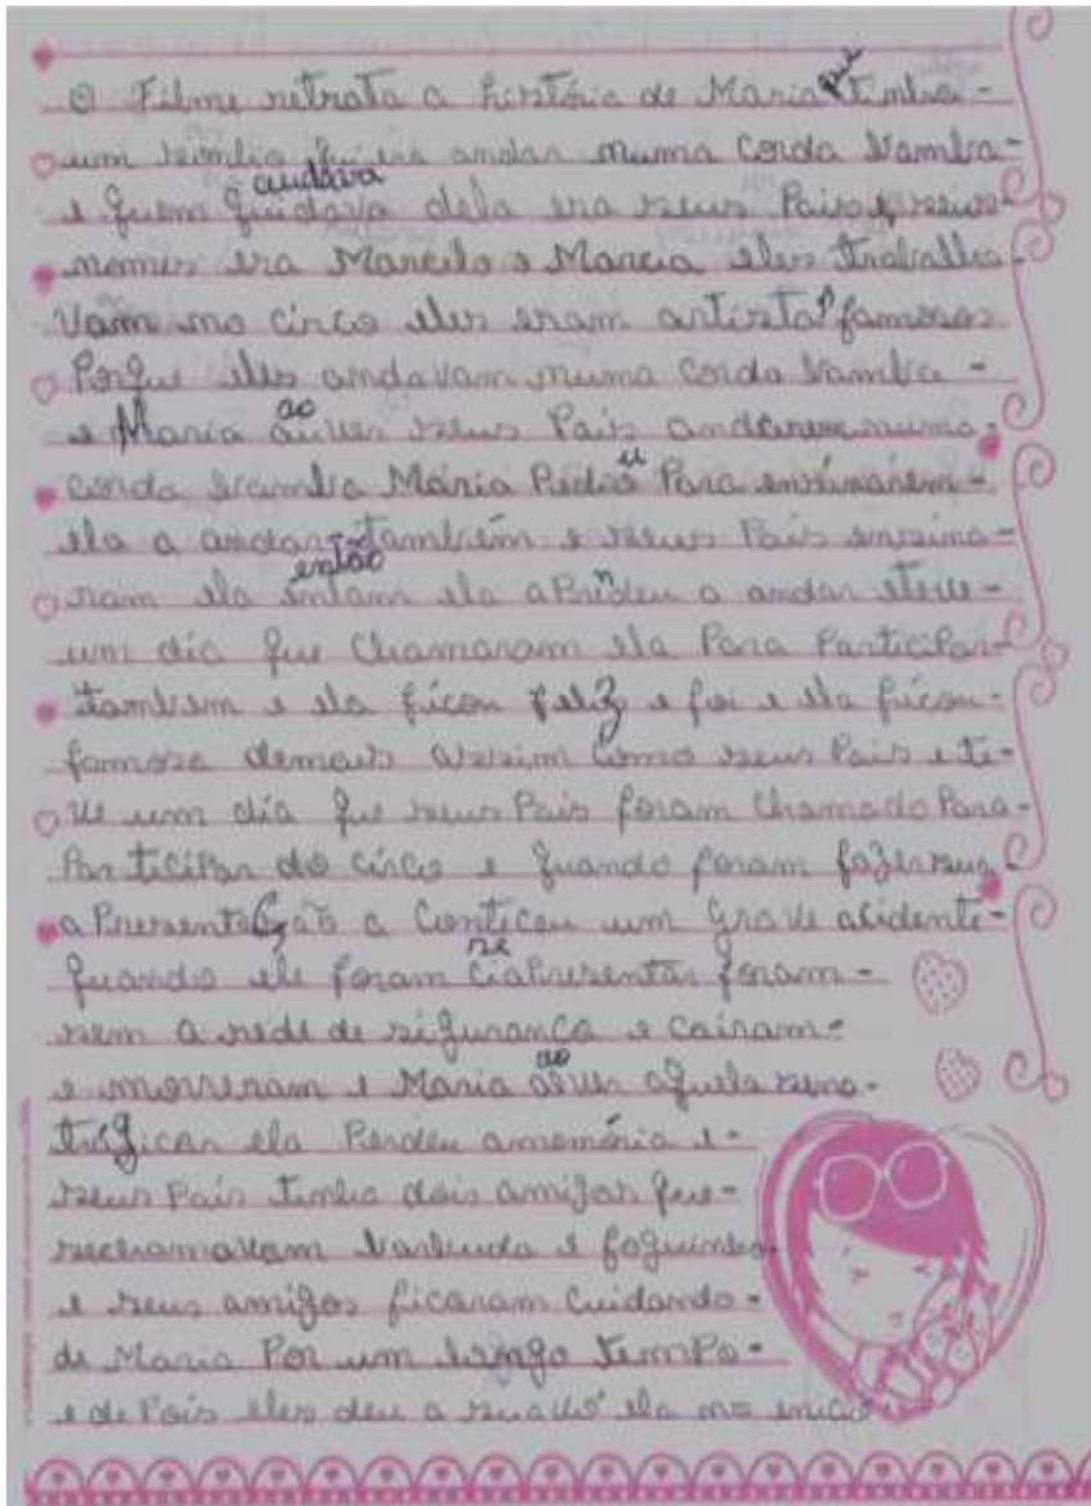 O Filme retrata a história de Maria que tinha-
um sonho qui era andar numa corda bamba-
e quem quidava cuidava dela era seus Pais e seus-
nomes era Marcelo e Marcia eles trabalha-
vam no circo eles eram artista famosos
Porque eles andavam numa corda bamba-
e Maria ao ver seus Pais andarem numa-
corda bamba Maria Pediu Para ensinarem-
ela a andar também e seus Pais ensina-
ram ela intam então ela aPrendeu a andar eteve-
um dia que chamaram ela Para ParticiPar-
tambem e ela ficou feliz e foi e ela ficou-
famosa demais assim como seus Pais e te-
ve um dia que seus Pais foram chamado Para-
ParticiPar do circo e quando foram fazer sua-
aPresentação a conteceu um grave acidente-
quando ele foram se aPresentar foram-
sem a rede de sigurança e cairam-
e morreram e Maria ao ver aquela sena-
trágicar ela Perdeu amemória e-
seus Pais tinha dois amigos que-
sechamavam Barbuda e foguinho-
e seus amigos ficaram cuidando-
de Maria Por um longo temPo-
e dePois eles deu a suavó ela no inicio